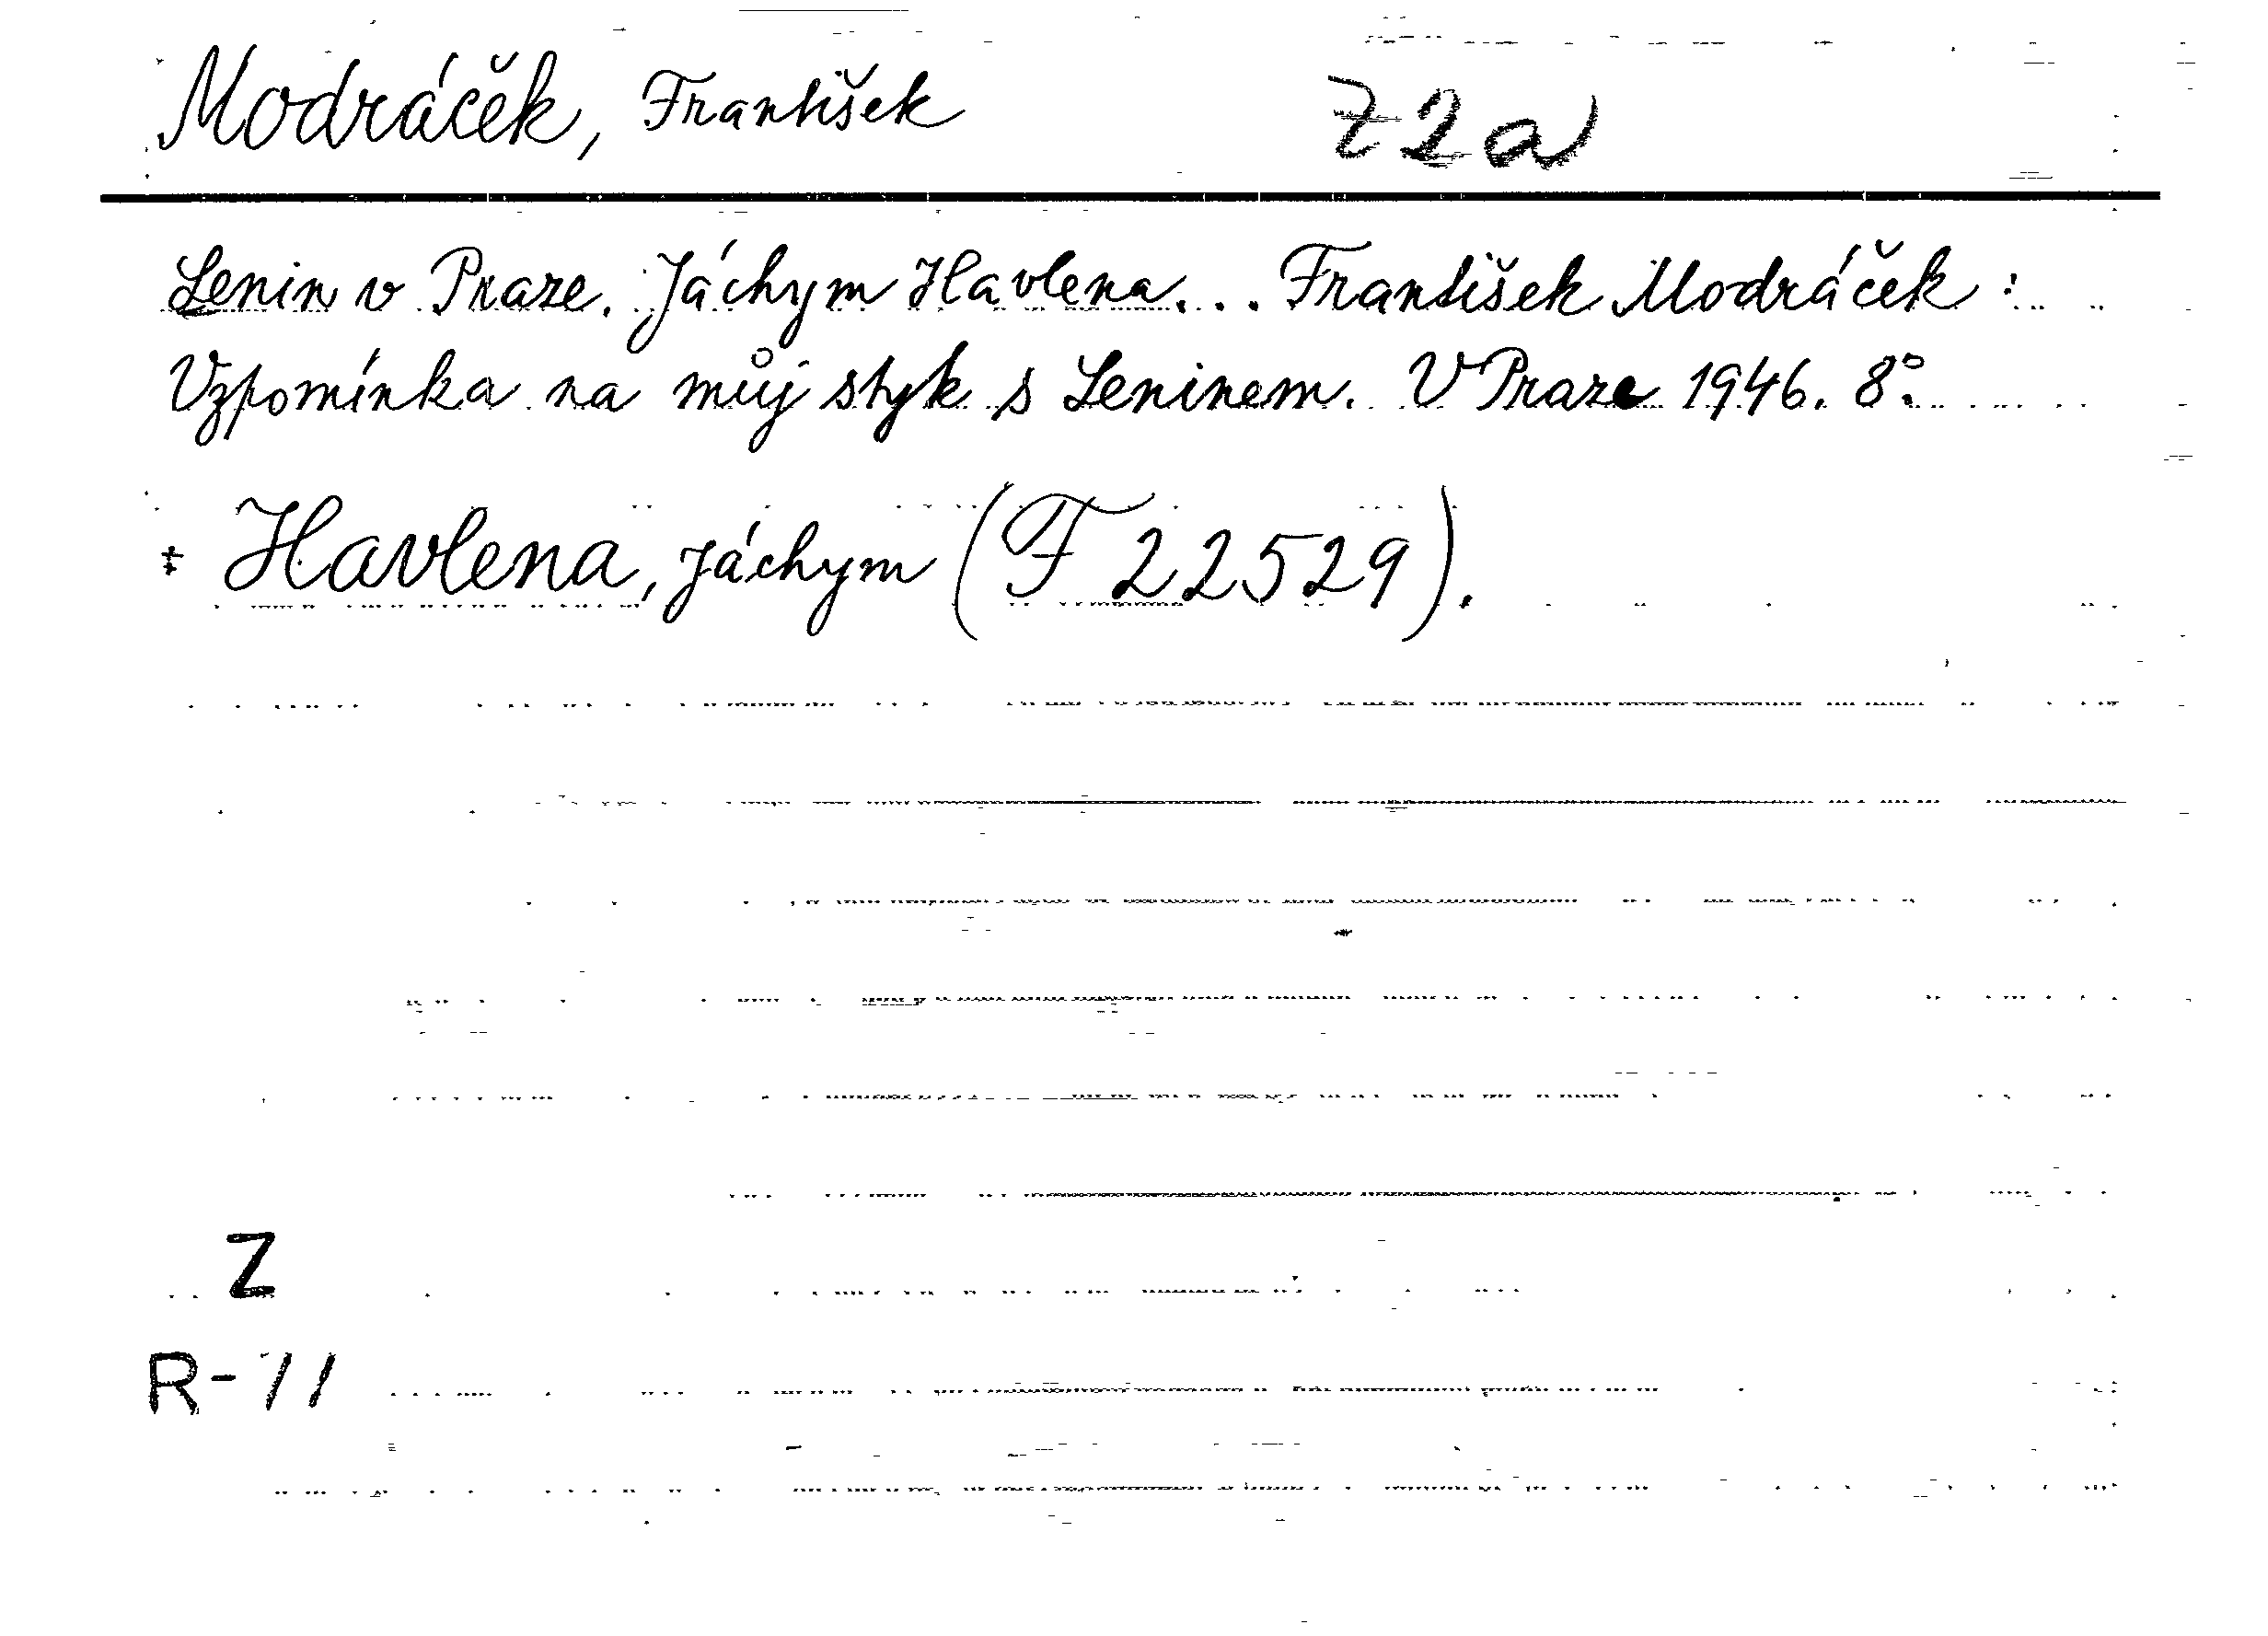 Modráček, František Z2a
Lenin v Praze. Jáchym Havlena... František Modráček:
Vzpomínka na můj styk s Leninem. V Praze 1946. 8°.
‡ Havlena, Jáchym (F 22529).
Z
R-71